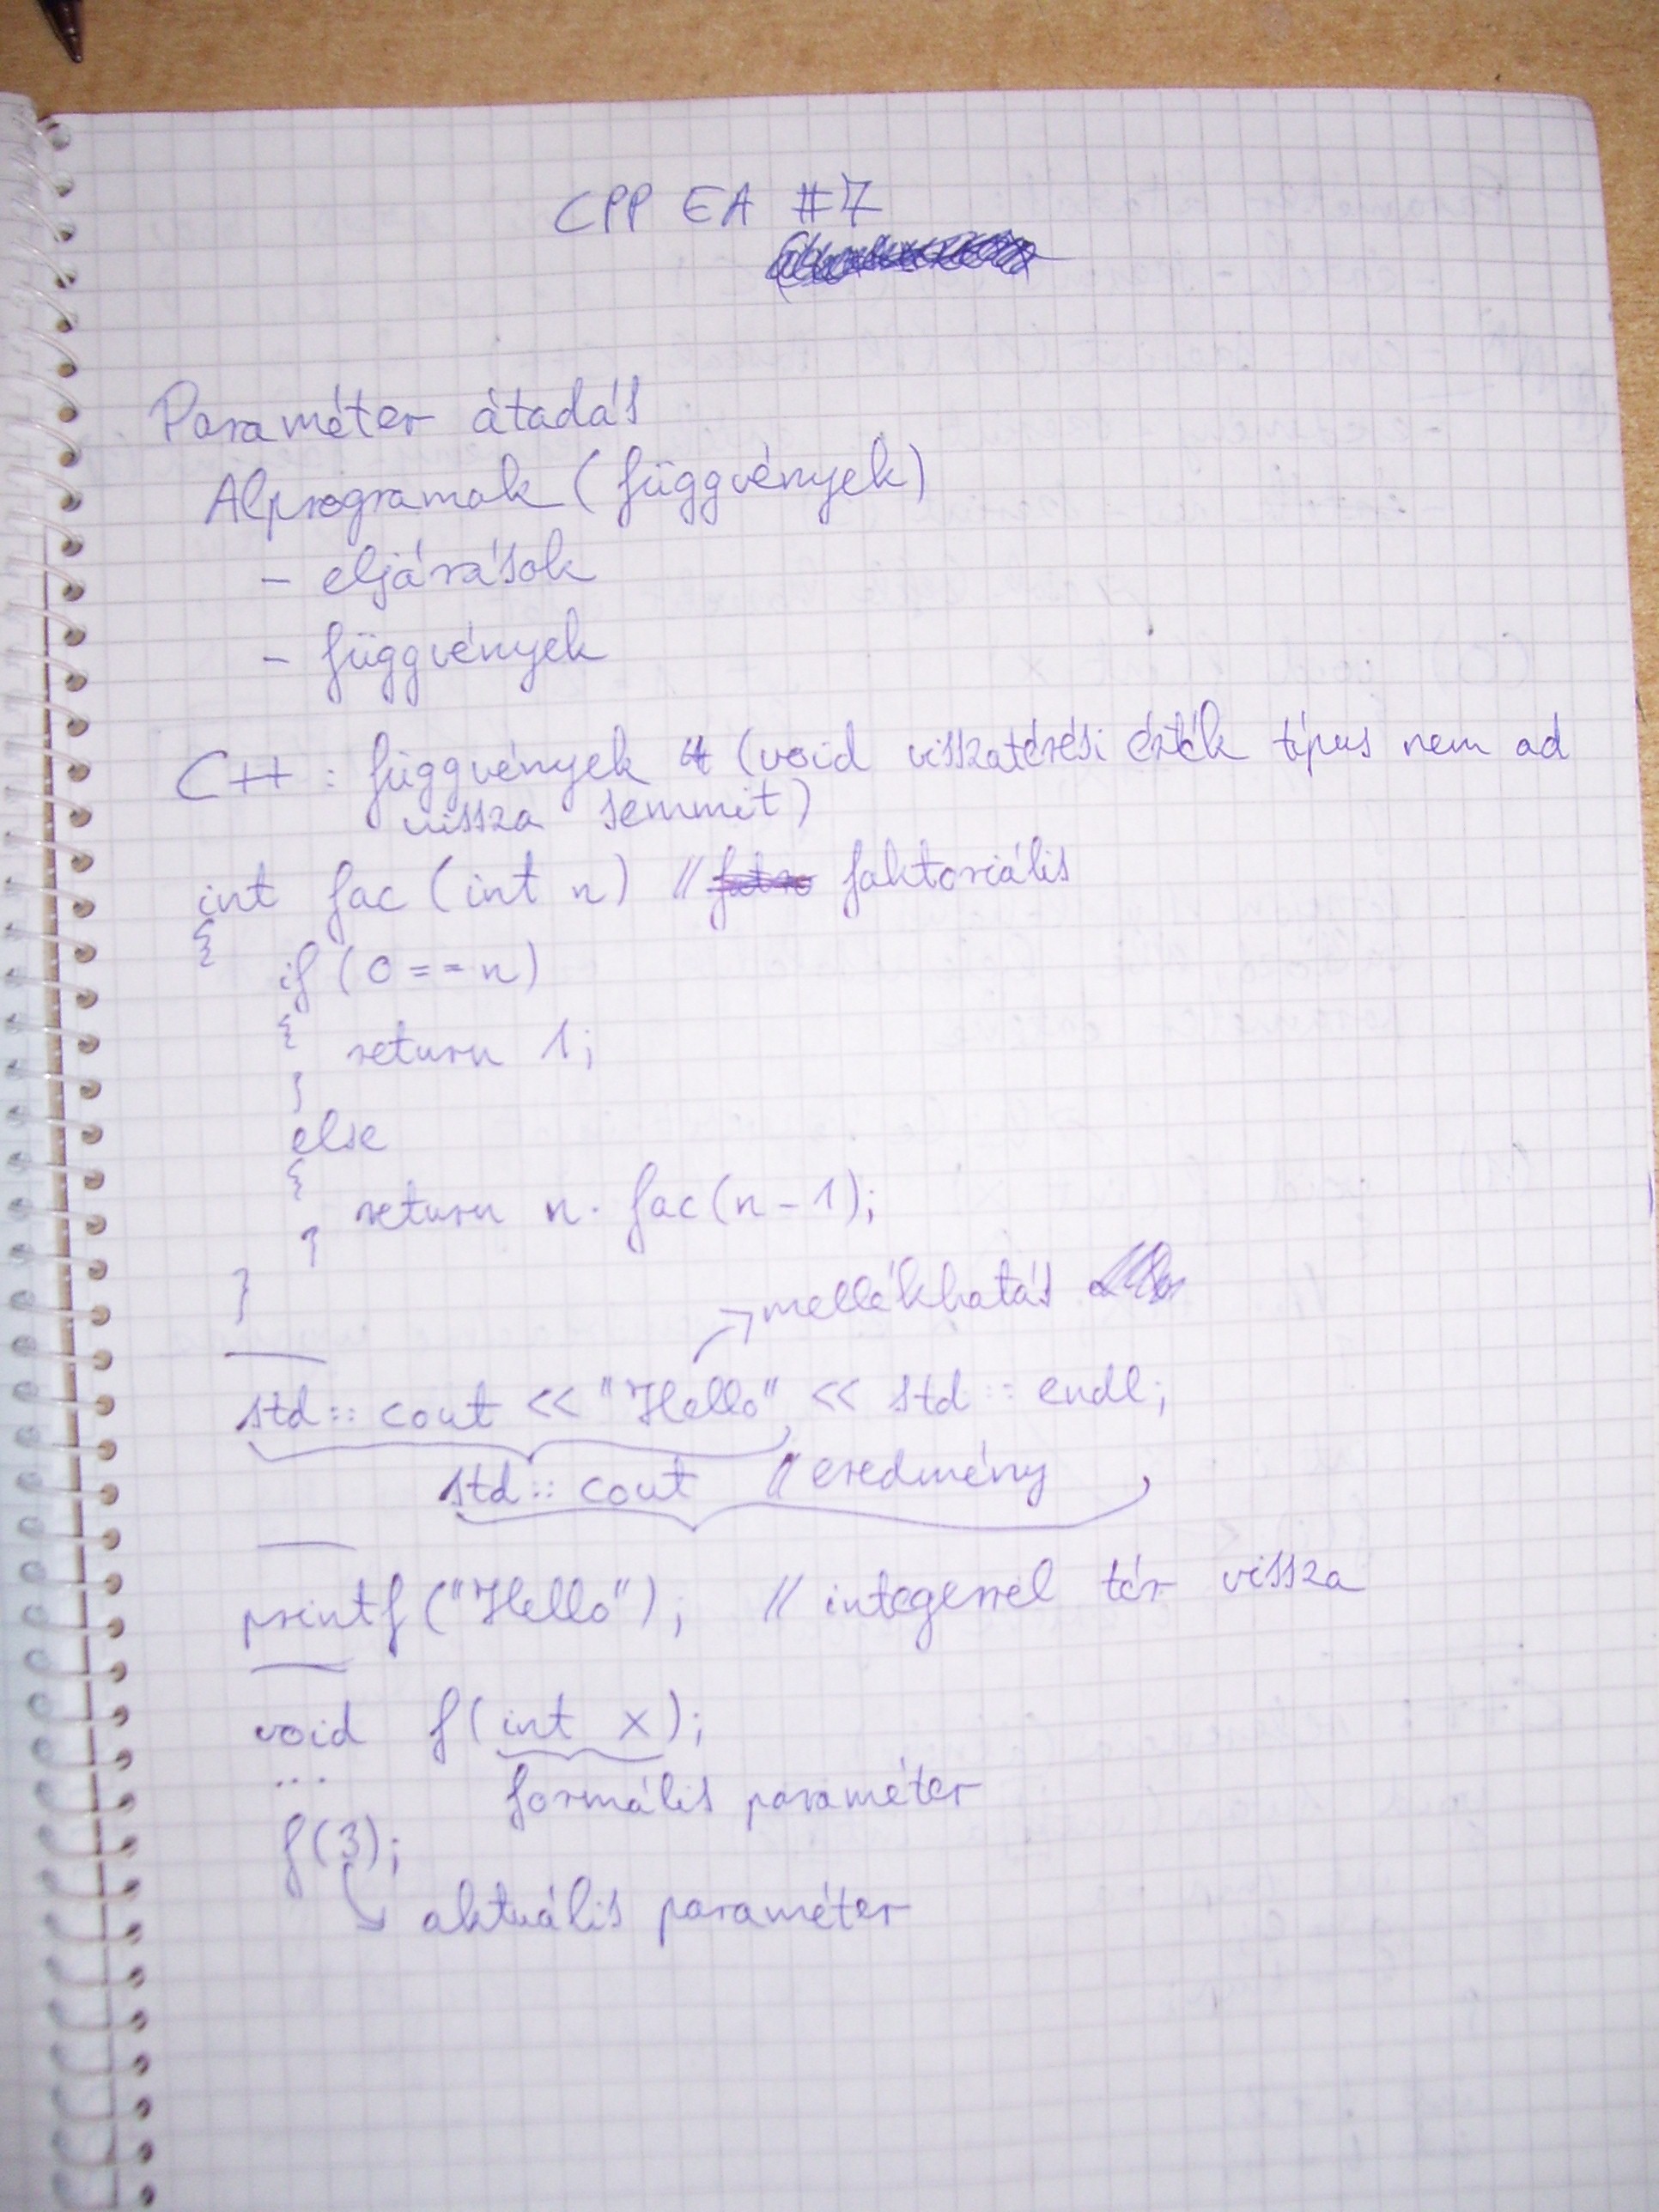 CPP EA #7
Paraméter átadás
Alprogramok (függvények)
- eljárások
- függvények
C++ : függvények (void visszatérési érték típus nem ad
vissza semmit)
int fac (int n) // faktoriális
{
if (0 == n)
{ return 1;
}
else
{
return n · fac(n - 1);
}
}
mellékhatás
std:: cout << "Hello" << std :: endl;
std:: cout // eredmény
printf ("Hello"); // integerrel tér vissza
void f( int x );
...
formális paraméter
f(3);
aktuális paraméter